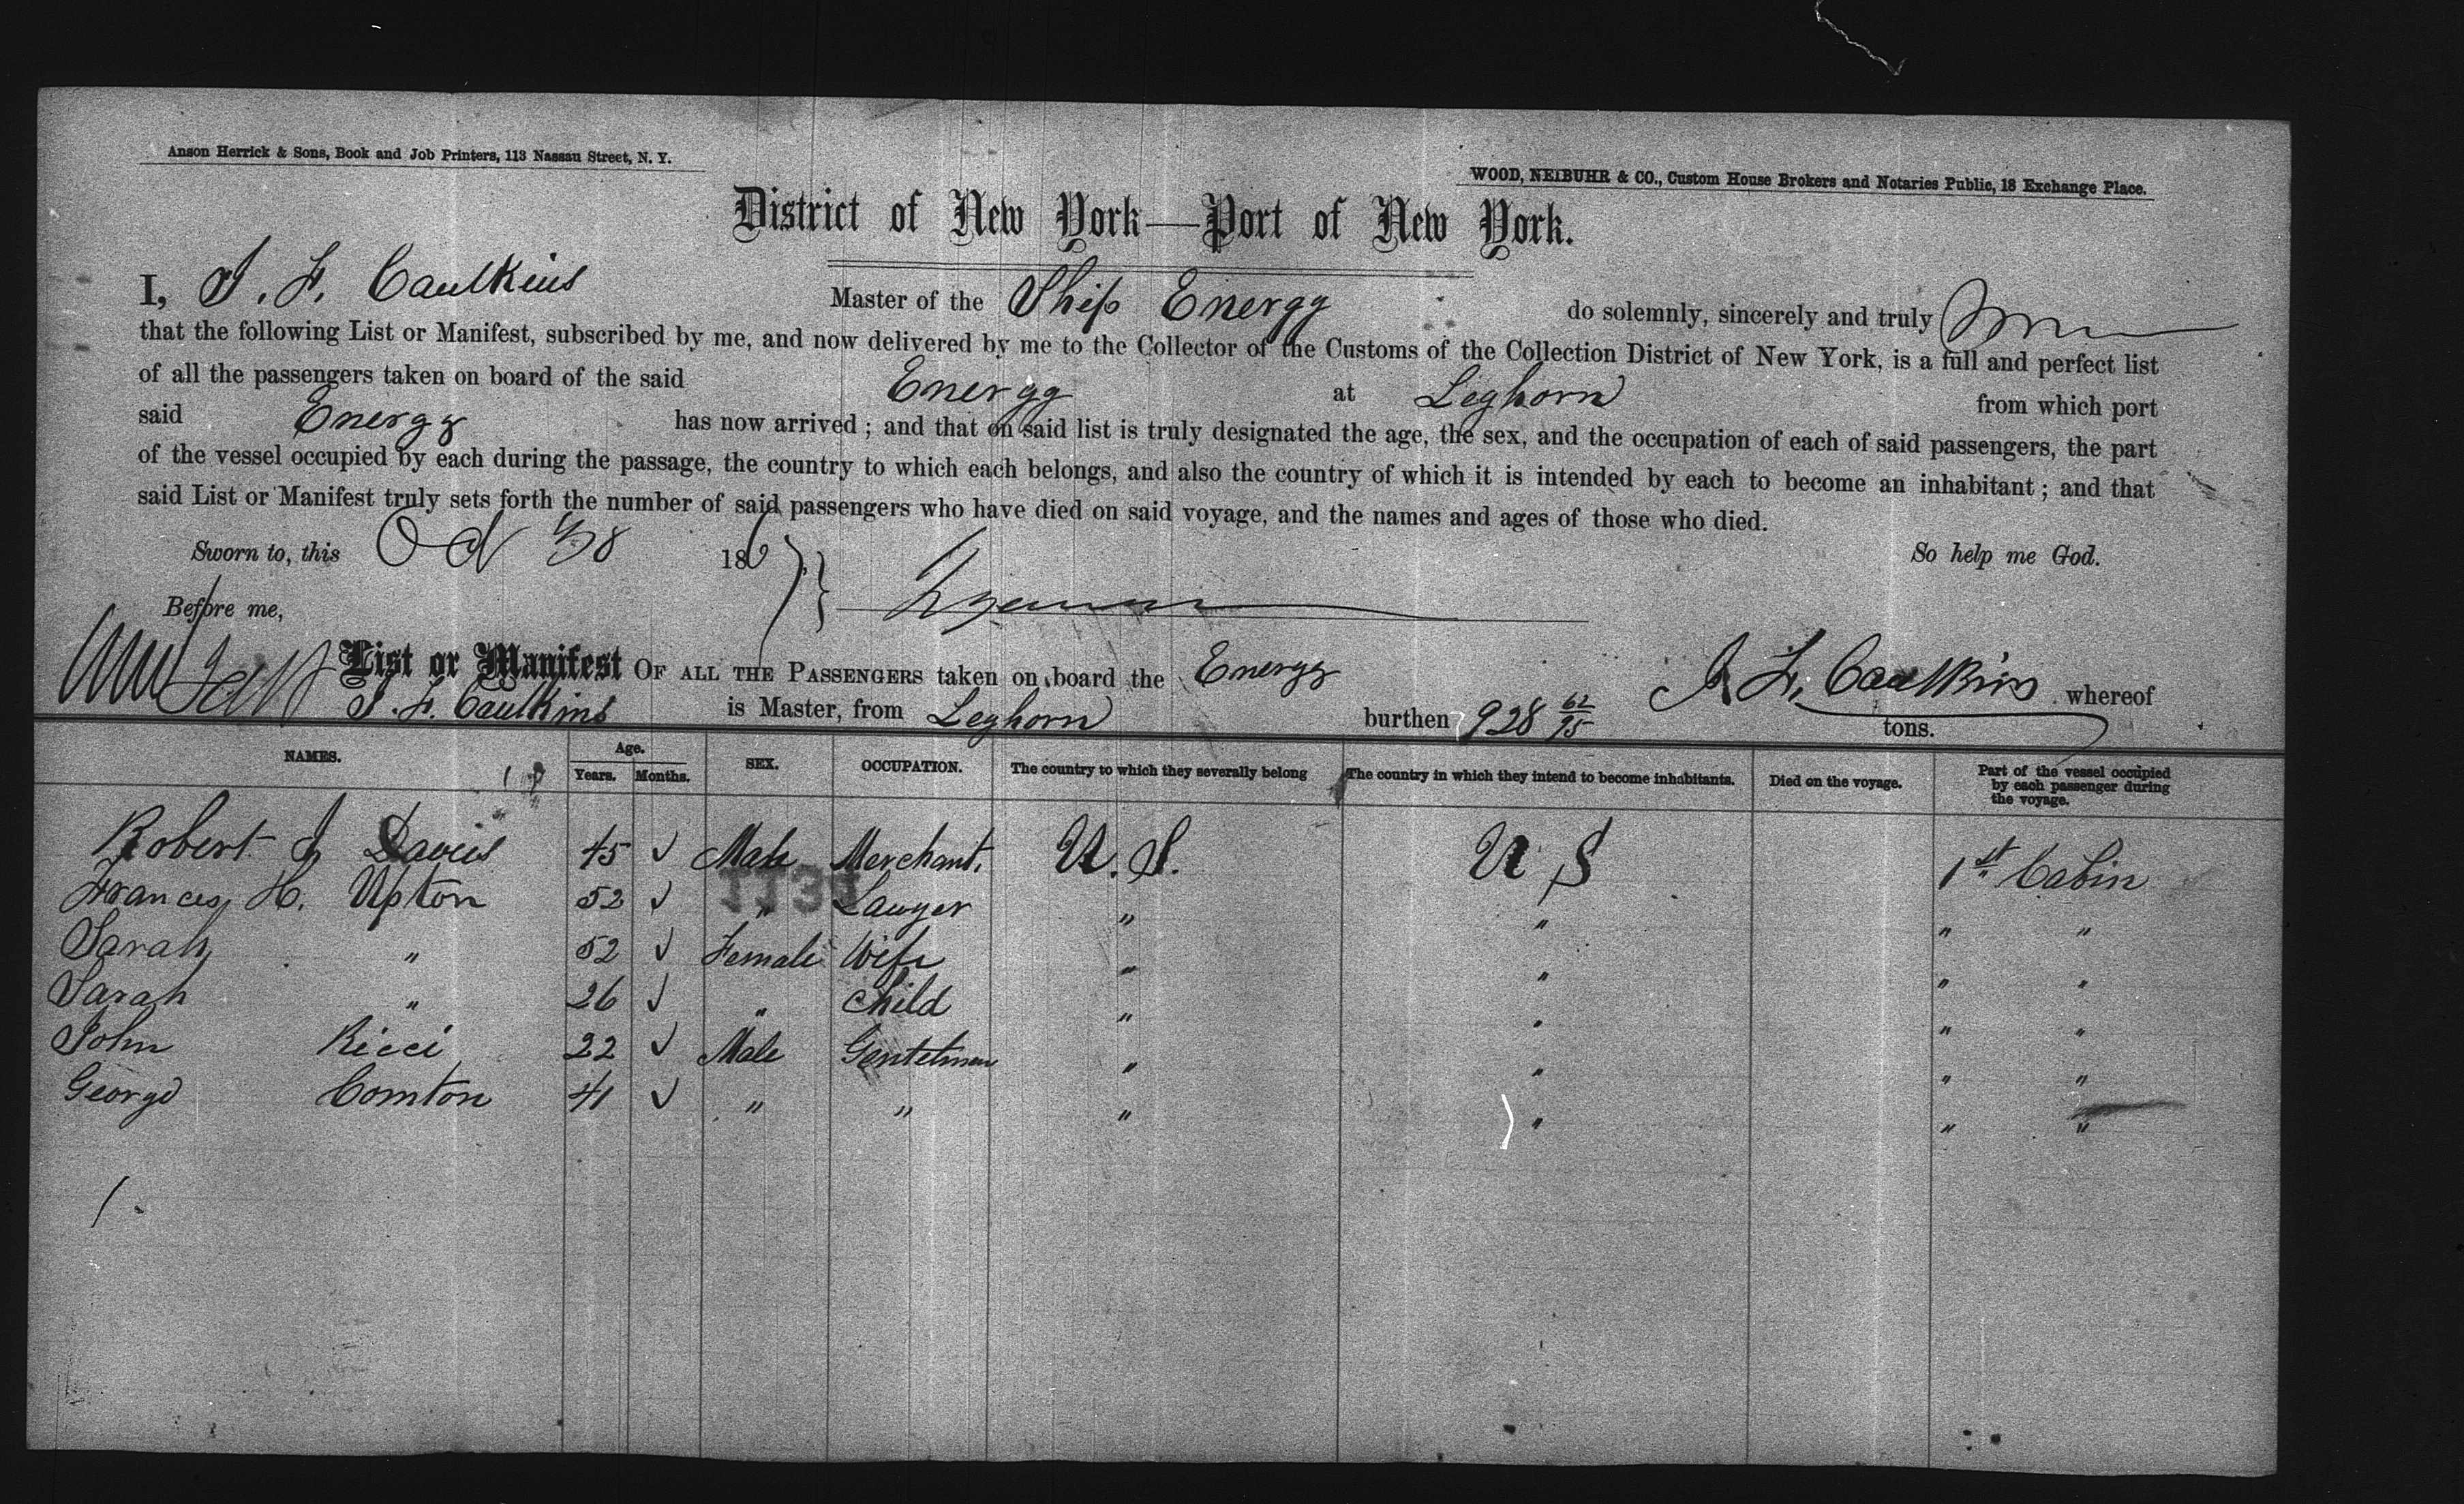 Anson Herrick & Sons, Book and Job Printers, 113 Nassau Street, N. Y.
WOOD, NEIBUHR & CO., Custom House Brokers and Notaries Public, 18 Exchange Place.
District of New York—Port of New York.
I, J. F. Caulkins Master of the Ship Energy do solemnly, sincerely and truly
that the following List or Manifest, subscribed by me, and now delivered by me to the Collector of the Customs of the Collection District of New York, is a full and perfect list
of all the passengers taken on board of the said Energy at Leghorn from which port
said Energy has now arrived; and that on said list is truly designated the age, the sex, and the occupation of each of said passengers, the part
of the vessel occupied by each during the passage, the country to which each belongs, and also the country of which it is intended by each to become an inhabitant; and that
said List or Manifest truly sets forth the number of said passengers who have died on said voyage, and the names and ages of those who died.
Sworn to, this 186 So help me God.
Before me,
J. F. Caulkins
List or Manifest OF ALL THE PASSENGERS taken on board the Energy whereof
J. F. Caulkins is Master, from Leghorn burthen 928 62/95 tons.
NAMES. Age. Years. Months. SEX. OCCUPATION. The country to which they severally belong The country in which they intend to become inhabitants. Died on the voyage. Part of the vessel occupied by each passenger during the voyage.
Robert J Davies 45 ✓ Male Merchant. U. S. U S 1st Cabin
Frances H. Upton 52 ✓ " Lawyer " " " "
Sarah " 52 ✓ Female Wife " " " "
Sarah " 26 ✓ " Child " " " "
John Ricci 22 ✓ Male Gentelman " " " "
George Comton 41 ✓ " " " " " "